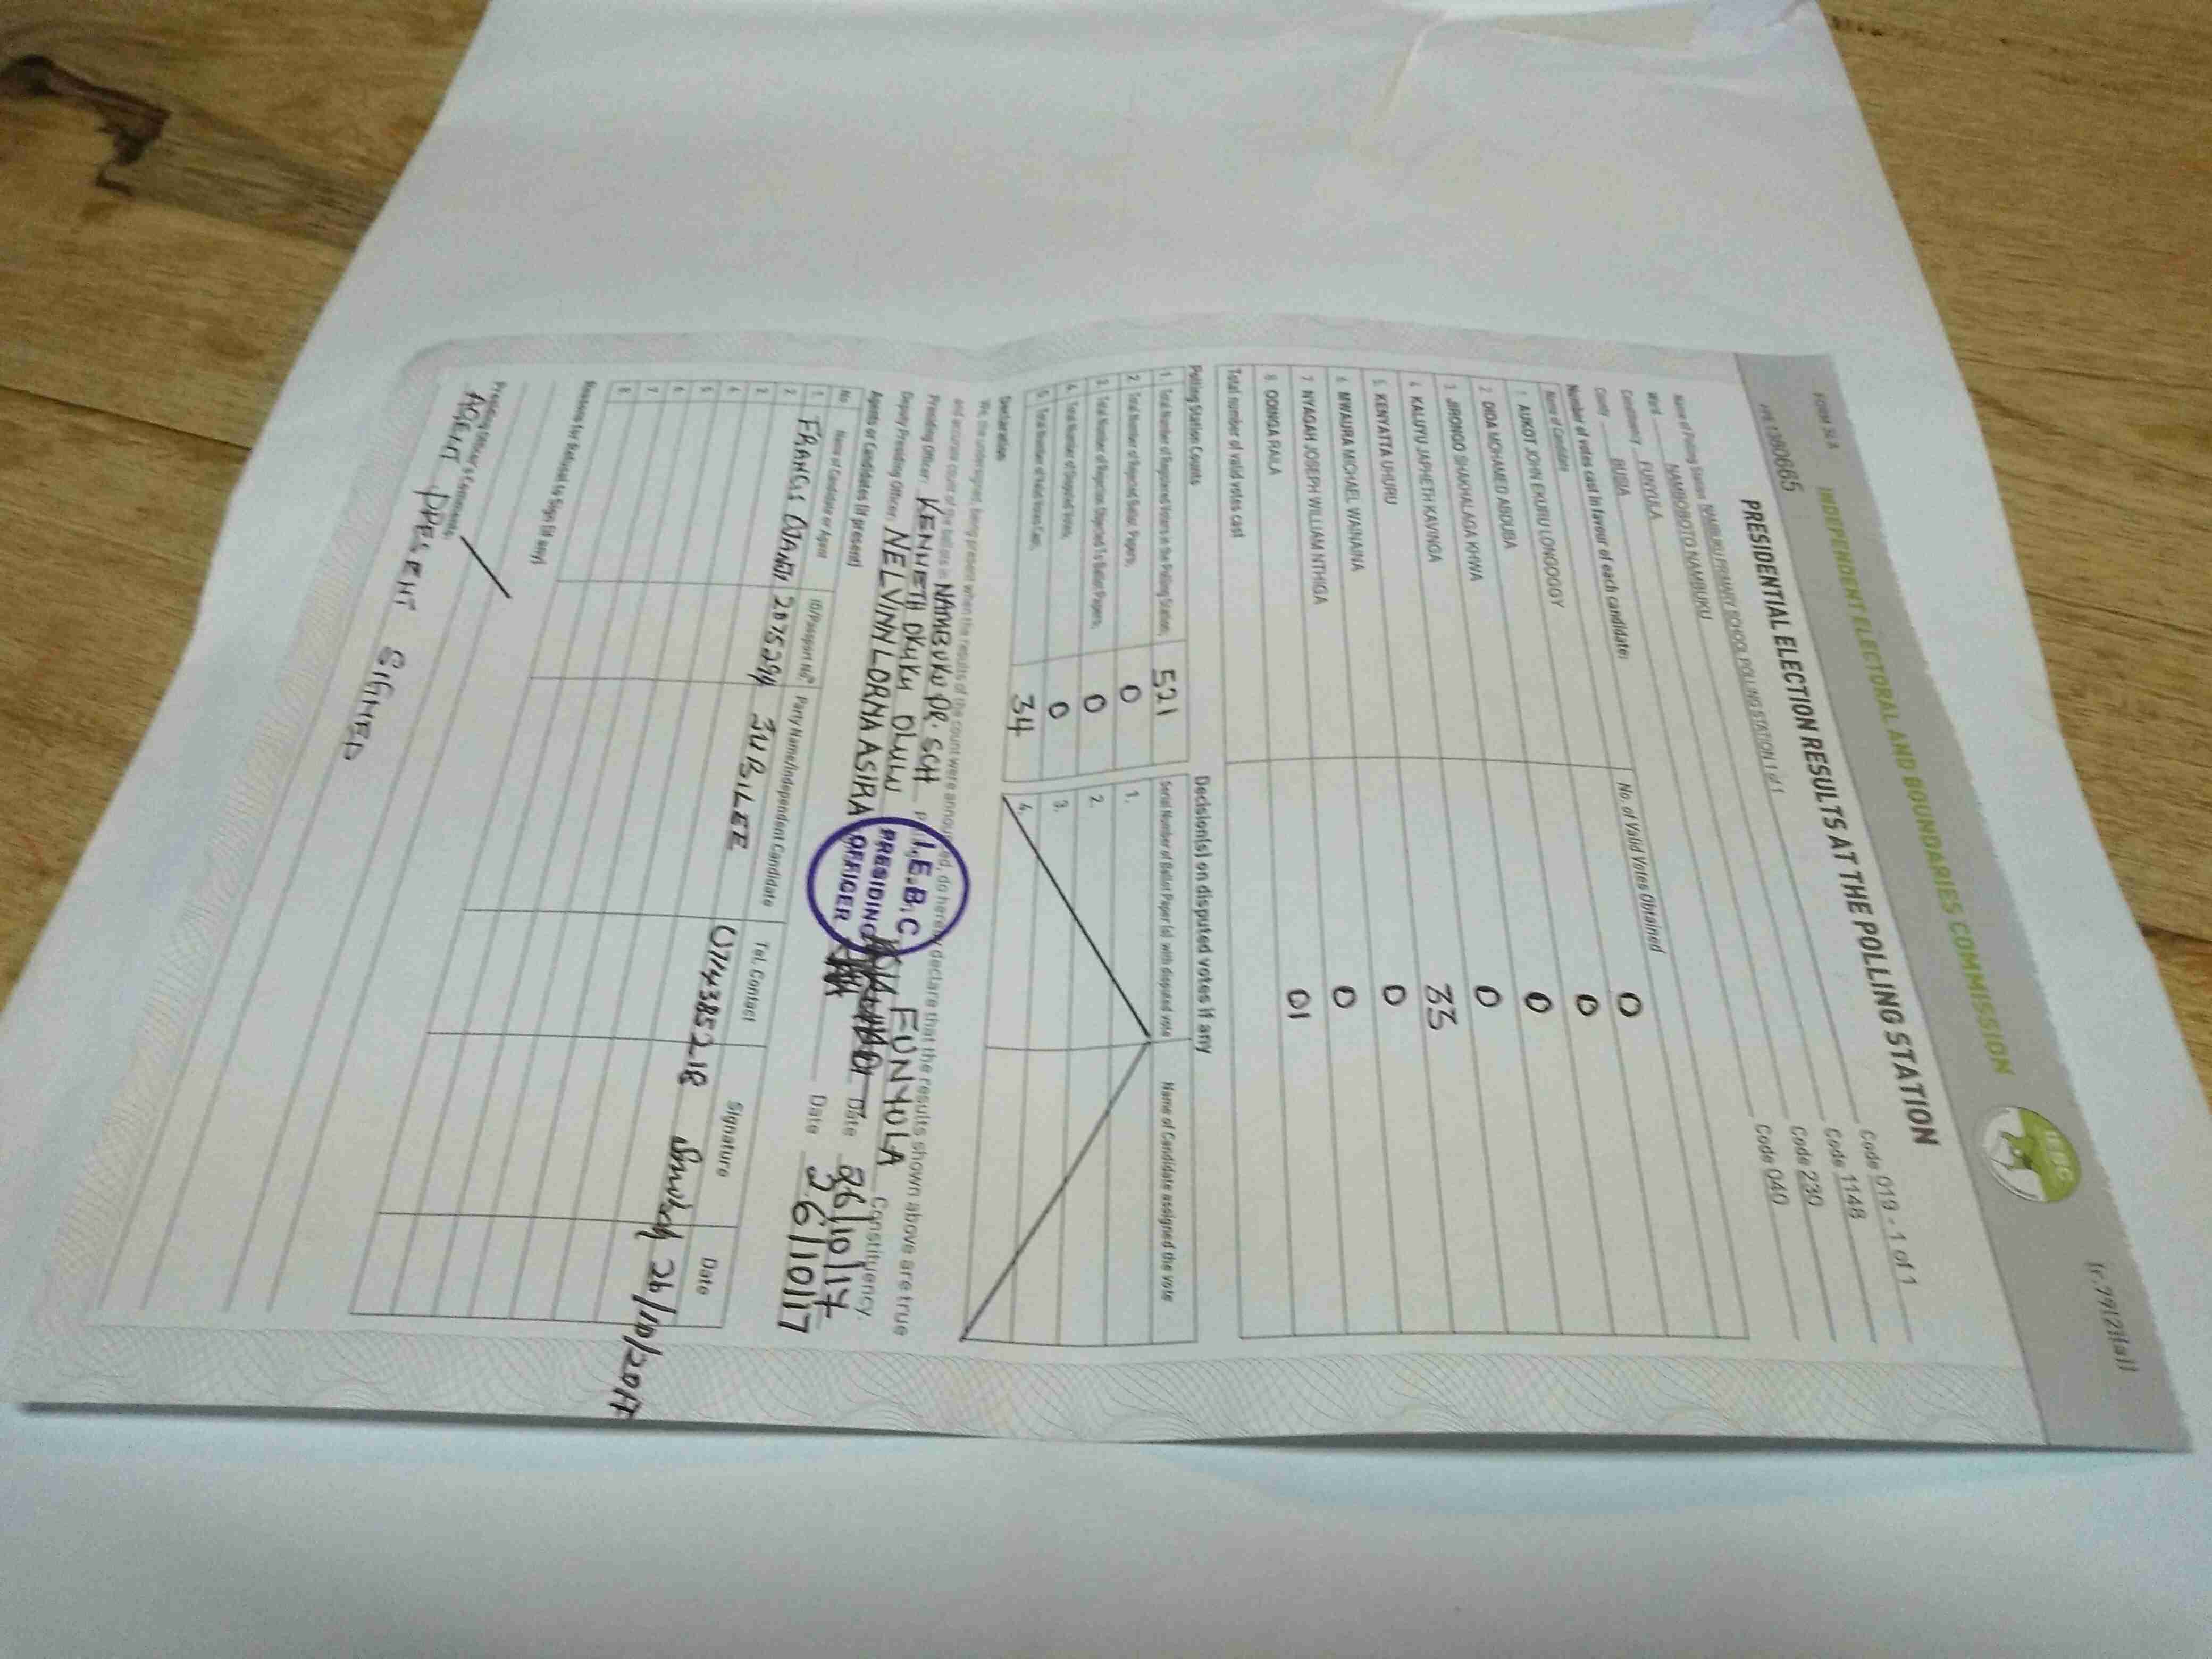 FORM 34A
INDEPENDENT ELECTORAL AND BOUNDARIES COMMISSION
IEBC
PRESIDENTIAL ELECTION RESULTS AT THE POLLING STATION
Name of Polling Station NAMBUKU PRIMARY SCHOOL POLLING STATION 1 of 1 Code 019 - 1 of 1
Ward NAMBOBOTO NAMBUKU Code 1148
Constituency FUNYULA Code 230
County BUSIA Code 040
Number of votes cast in favour of each candidate:
Name of Candidate No. of Valid Votes Obtained
1 AUKOT JOHN EKURU LONGOGGY 0
2 DIDA MOHAMED ABDUBA 0
3 JIRONGO SHAKHALAGA KHWA 0
4 KALUYU JAPHETH KAVINGA 0
5 KENYATTA UHURU 33
6 MWAURA MICHAEL WAINAINA 0
7 NYAGAH JOSEPH WILLIAM NTHIGA 0
8 ODINGA RAILA 01
Total number of valid votes cast
Polling Station Counts
1. Total Number of Registered Voters in the Polling Station; 521
2. Total Number of Rejected Ballot Papers; 0
3. Total Number of Rejection Objected To Ballot Papers; 0
4. Total Number of Disputed Votes; 0
5. Total Number of Valid Votes Cast; 34
Decision(s) on disputed votes if any
Serial Number of Ballot Paper (s) with disputed vote Name of Candidate assigned the vote
1.
2.
3.
4.
Declaration
We, the undersigned, being present when the results of the count were announced, do hereby declare that the results shown above are true
and accurate count of the ballots in NAMBUKU PR. SCH FUNYULA Constituency
Presiding Officer: KENNETH OKUKU OLUW Date 26/10/17
Deputy Presiding Officer NELVINN LORNA ASIRA Date 26/10/17
I.E.B.C
PRESIDING
OFFICER
Agents or Candidates (if present)
No Name of Candidate or Agent ID/Passport No. Party Name/Independent Candidate Tel. Contact Signature Date
1. FRANCIS 2075294 JUBILEE 0714385218 26/10/2017
2
3
4
5
6
7
8
Reasons for Refusal to Sign (if any)
Presiding Officer's Comments:
AGENT PRESENT SIGNED